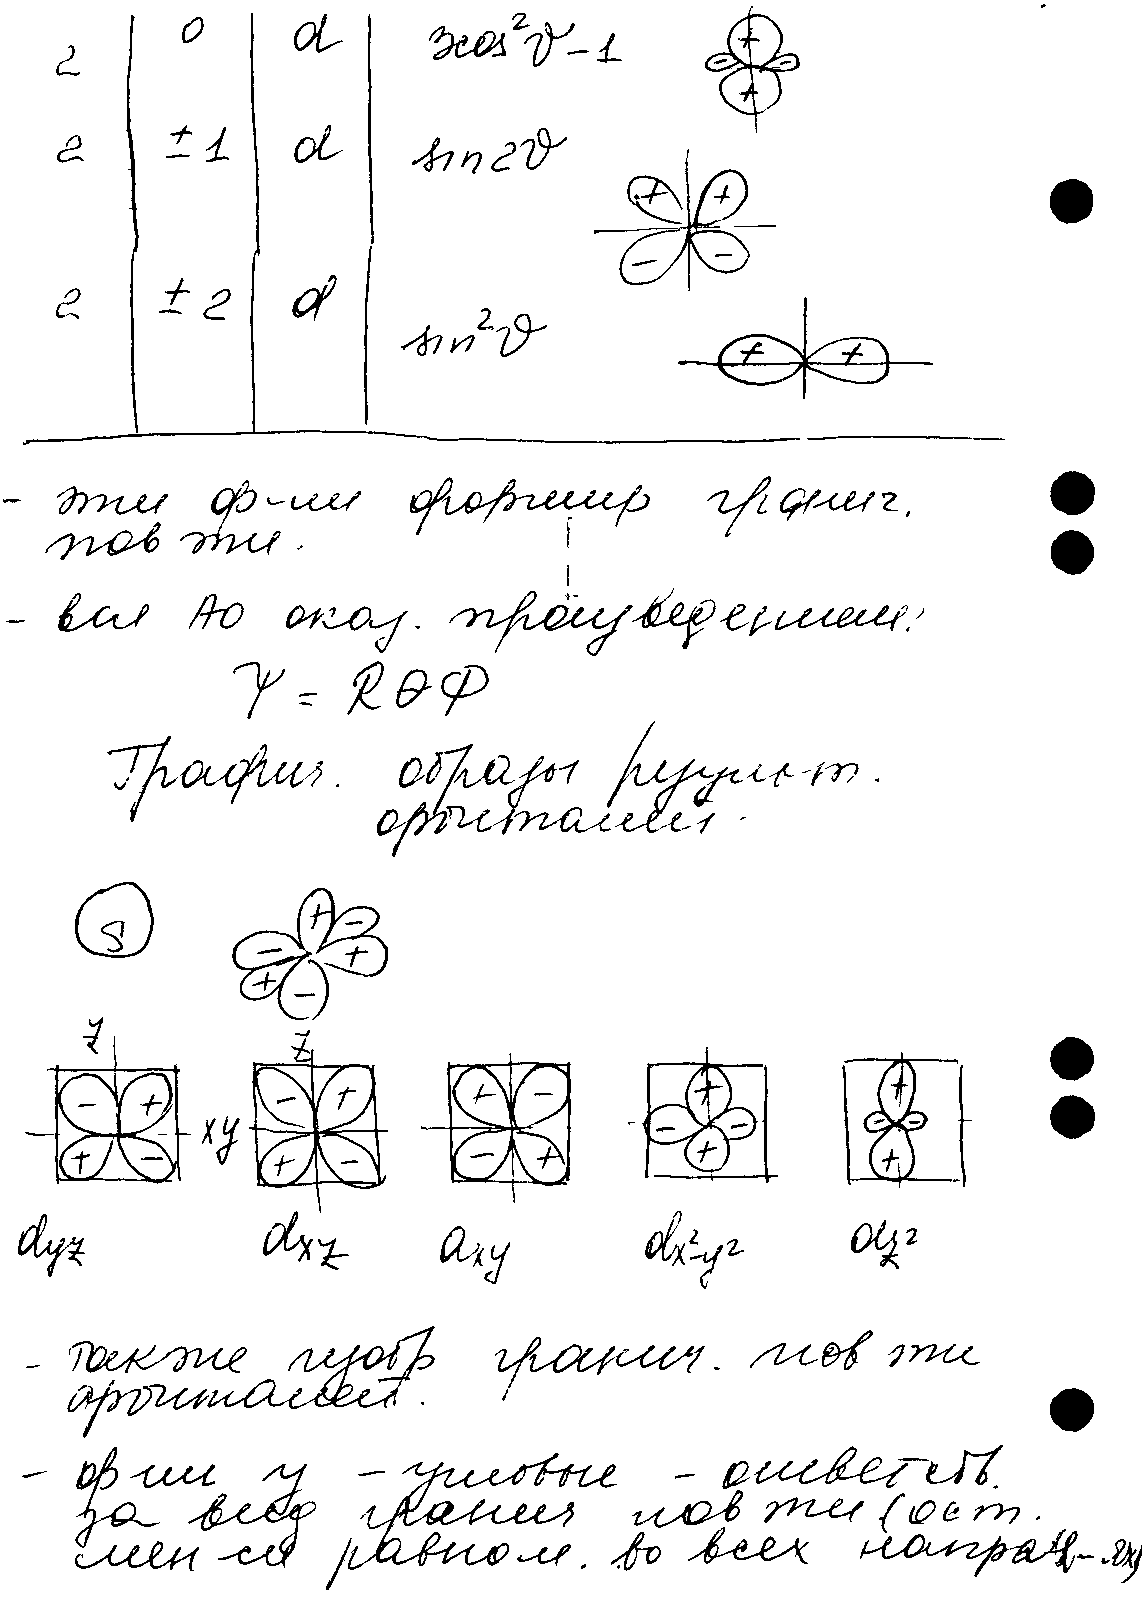 2 0 d 3cos²ϑ-1
2 ±1 d sin2ϑ
2 ±2 d sin²ϑ
- эти ф-ии формир гранич.
пов-ти.
- вся АО оказ. произведением:
Ψ = RΘΦ
Графич. образы результ.
орбиталей.
S
z z
xy
dyz dxz dxy dx²-y² dz²
- также изобр гранич. пов-ти
орбиталей.
- ф-ии y - угловые - ответств.
за вид гранич пов-ти (ост.
мен-ся равном. во всех направ-ях)